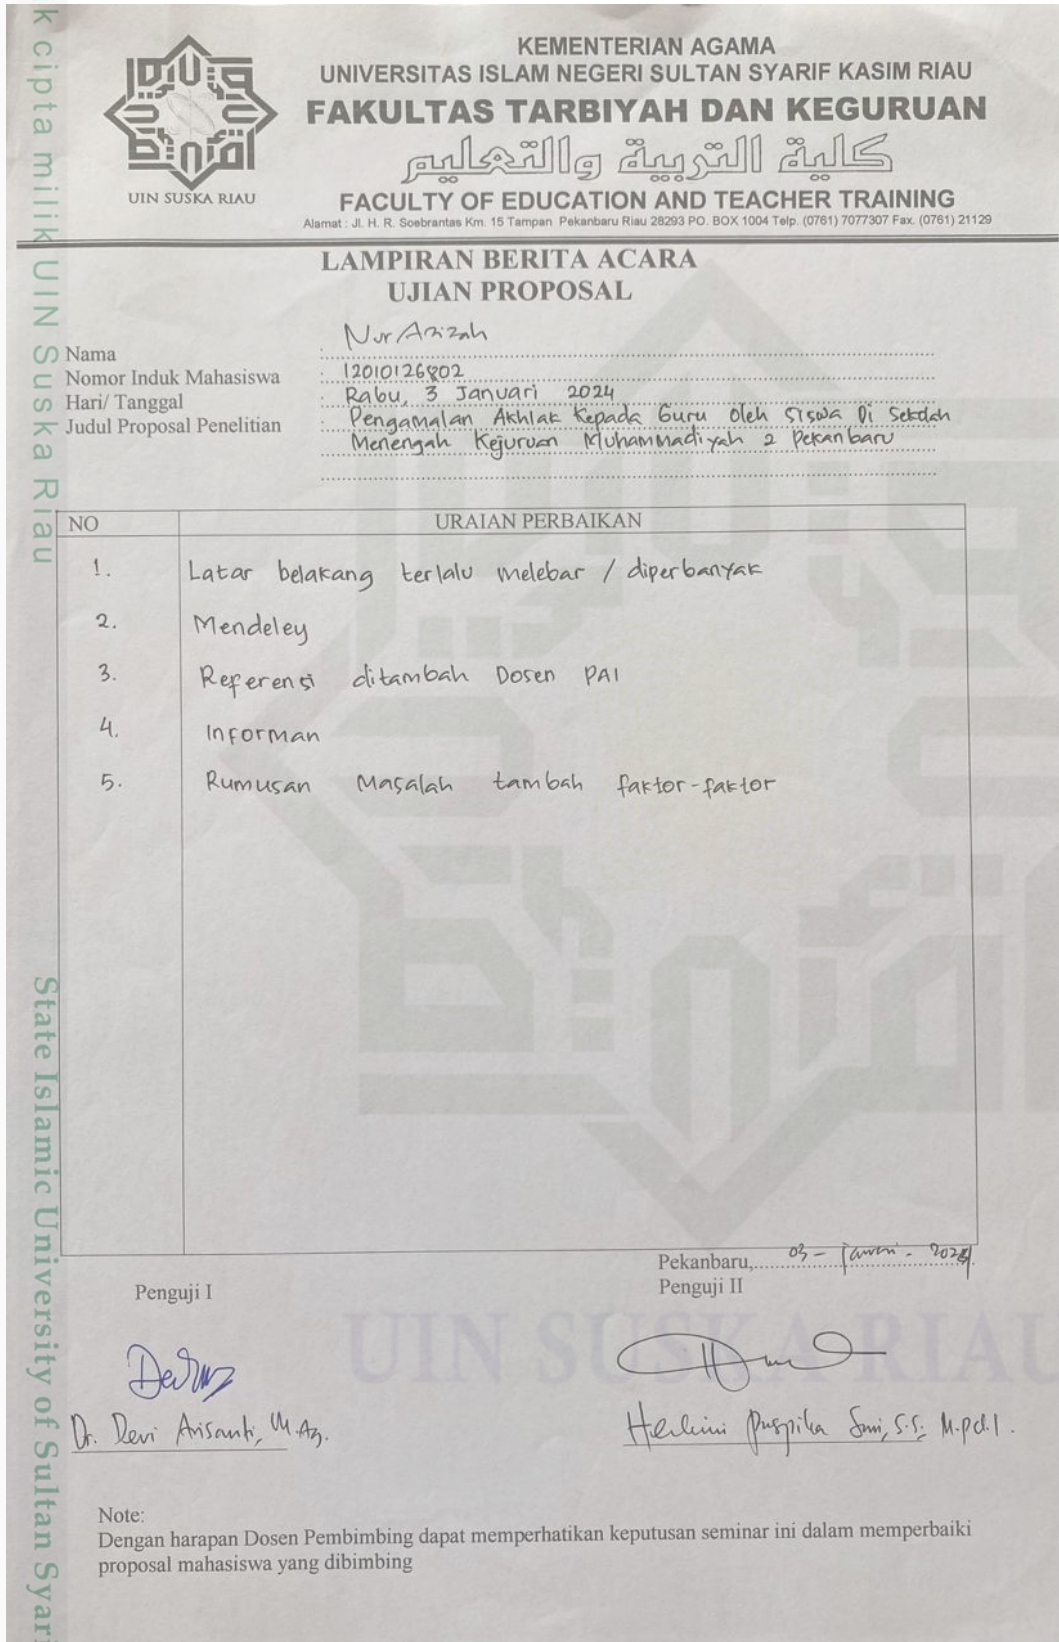 k cipta milik UIN Suska Riau
State Islamic University of Sultan Syari
UIN SUSKA RIAU
KEMENTERIAN AGAMA
UNIVERSITAS ISLAM NEGERI SULTAN SYARIF KASIM RIAU
FAKULTAS TARBIYAH DAN KEGURUAN
كلية التربية والتعليم
FACULTY OF EDUCATION AND TEACHER TRAINING
Alamat : Jl. H. R. Soebrantas Km. 15 Tampan Pekanbaru Riau 28293 PO. BOX 1004 Telp. (0761) 7077307 Fax. (0761) 21129
LAMPIRAN BERITA ACARA
UJIAN PROPOSAL
Nama : Nur Azizah
Nomor Induk Mahasiswa : 12010126802
Hari/ Tanggal : Rabu, 3 Januari 2024
Judul Proposal Penelitian : Pengamalan Akhlak Kepada Guru Oleh Siswa Di Sekolah
Menengah Kejuruan Muhammadiyah 2 Pekanbaru
NO URAIAN PERBAIKAN
1. Latar belakang terlalu melebar / diperbanyak
2. Mendeley
3. Referensi ditambah Dosen PAI
4. Informan
5. Rumusan Masalah tambah faktor-faktor
Pekanbaru, 03 - Januari - 2024
Penguji I
Penguji II
UIN SUSKA RIAU
Dr. Devi Arisanti, M.Ag.
Puspika Sari, S.S., M.Pd.I.
Note:
Dengan harapan Dosen Pembimbing dapat memperhatikan keputusan seminar ini dalam memperbaiki
proposal mahasiswa yang dibimbing